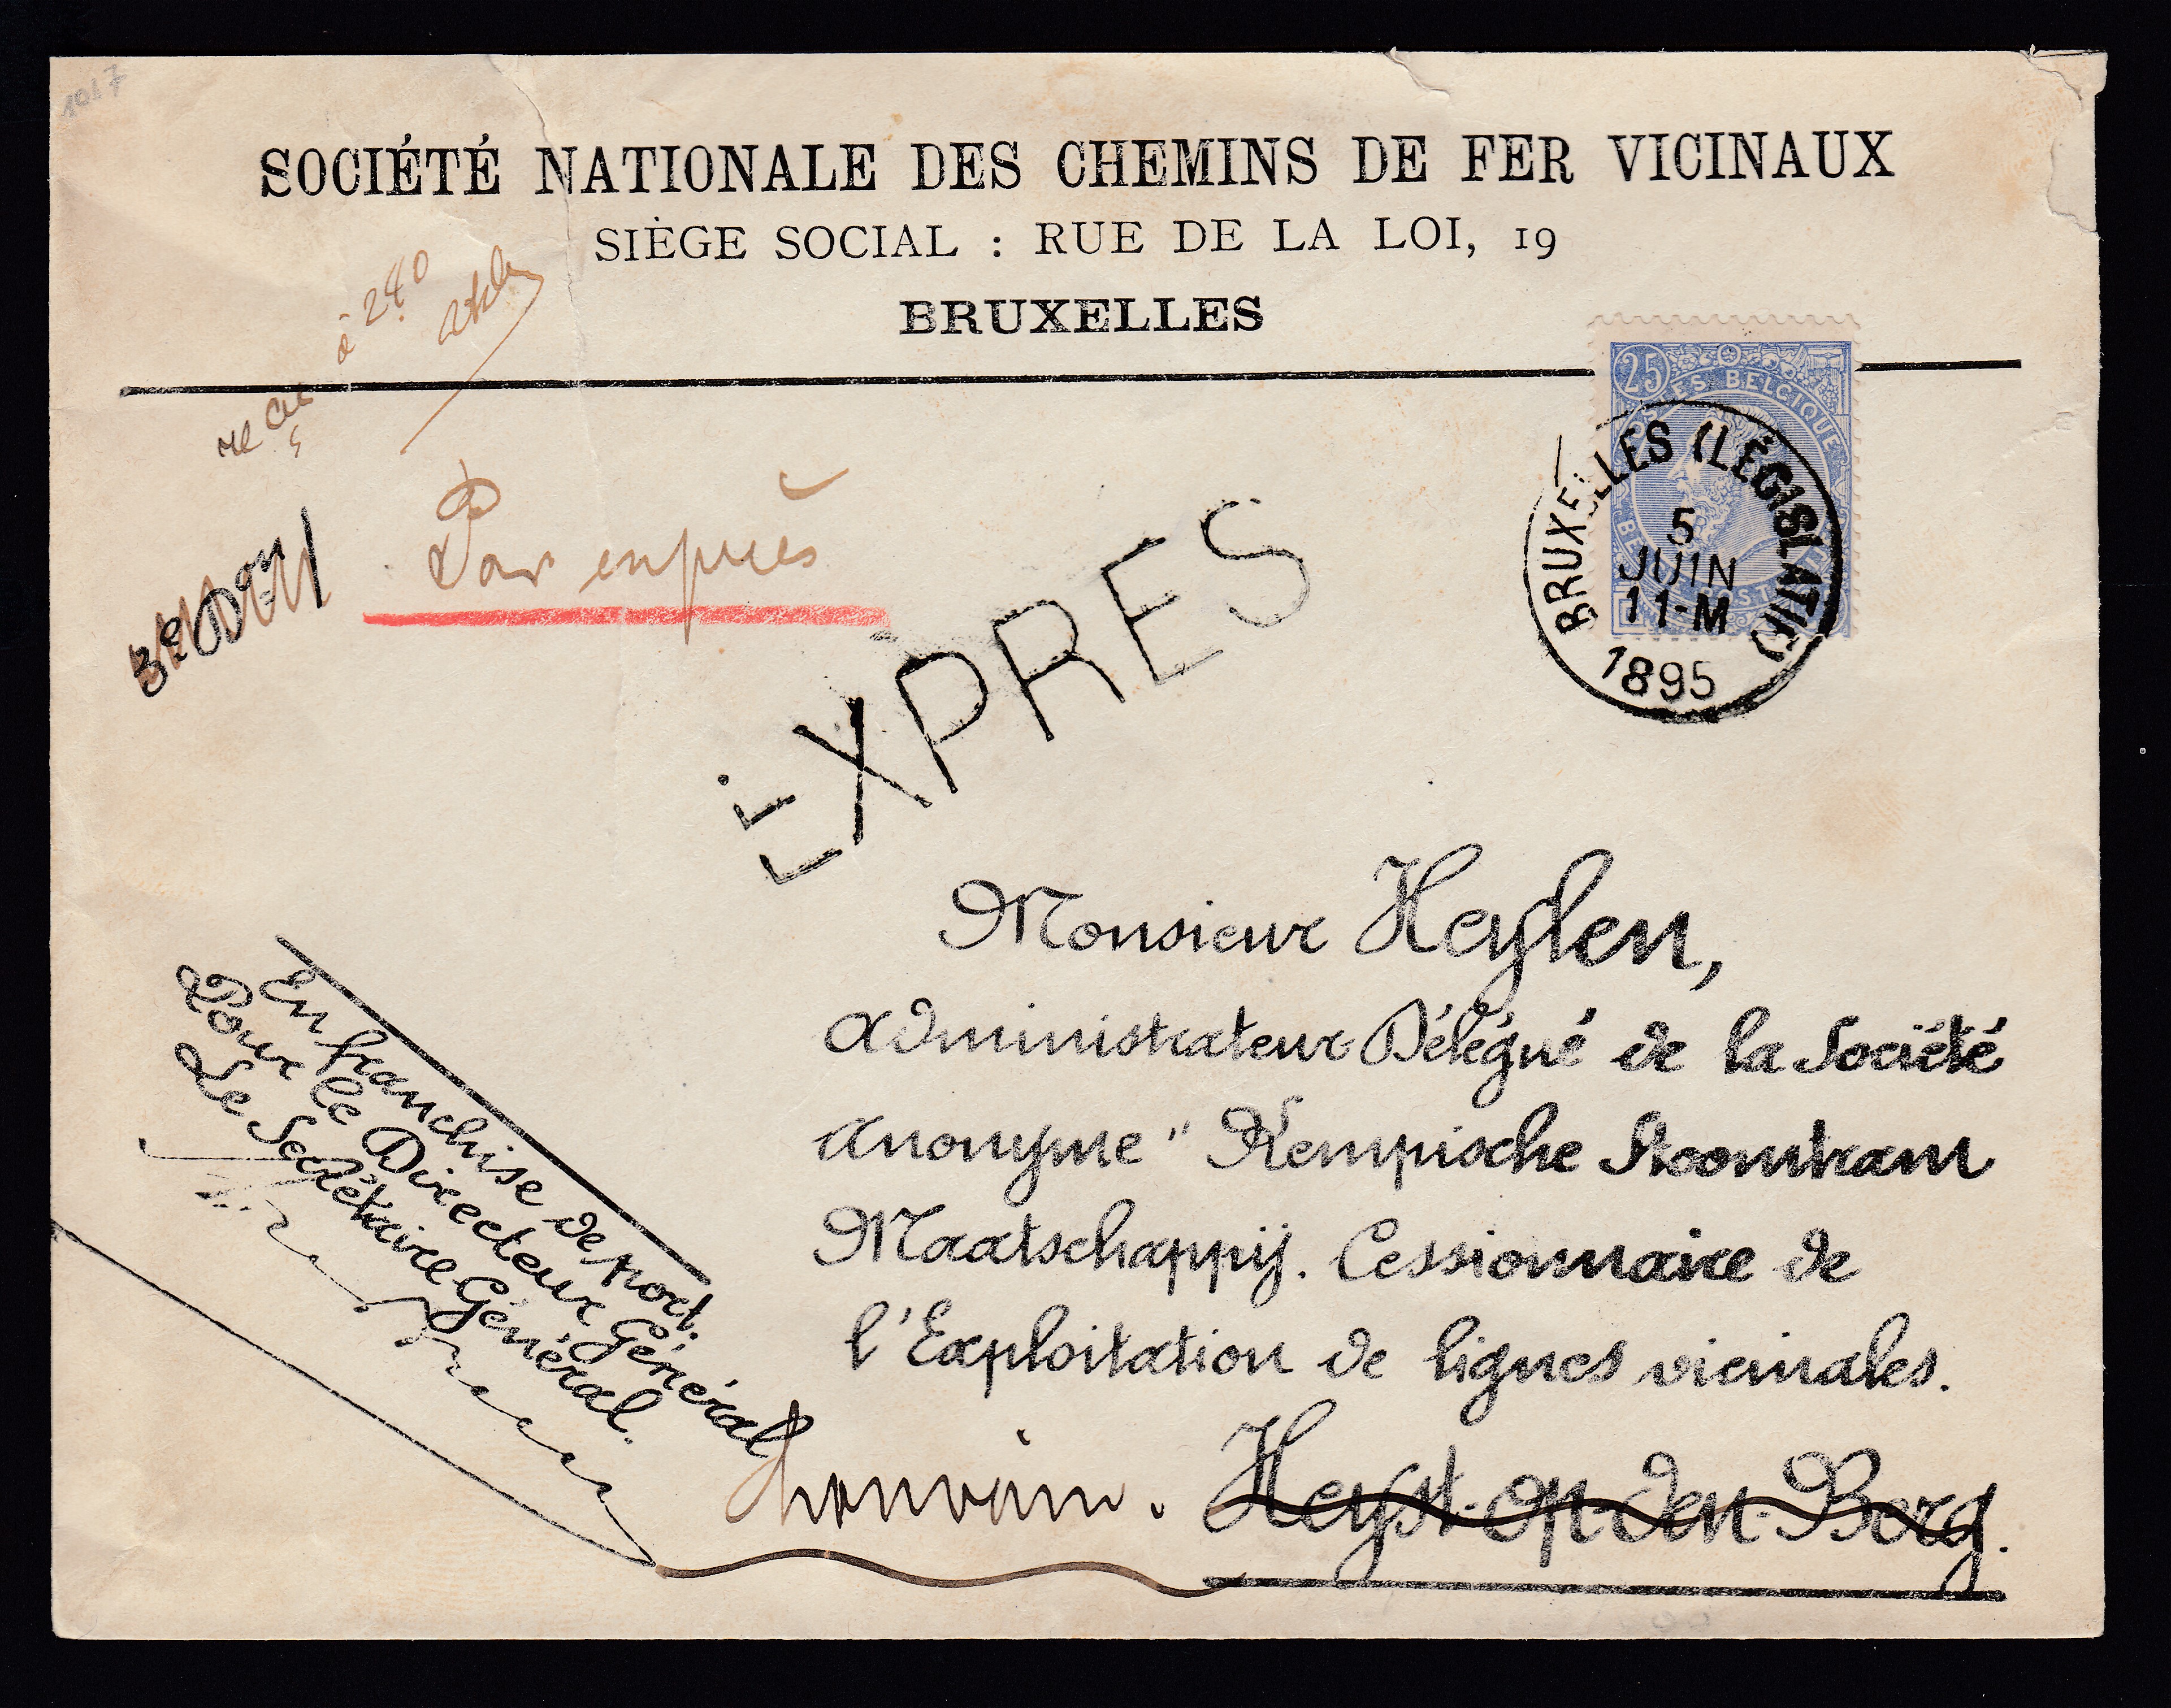 1017
SOCIÉTÉ NATIONALE DES CHEMINS DE FER VICINAUX
SIÈGE SOCIAL : RUE DE LA LOI, 19
BRUXELLES
à 240
25
BELGIQUE
BRUXELLES (LÉGISLATIF)
5
JUIN
11-M
1895
Par exprès
EXPRES
Monsieur Heylen,
Administrateur Délégué de la Société
Anonyme " Kempische Stoomtram
Maatschappij. Cessionnaire de
l'Exploitation de lignes vicinales.
Louvain. Heyst-op-den-Berg.
En franchise de port.
Pour le Directeur Général
Le Secrétaire Général.